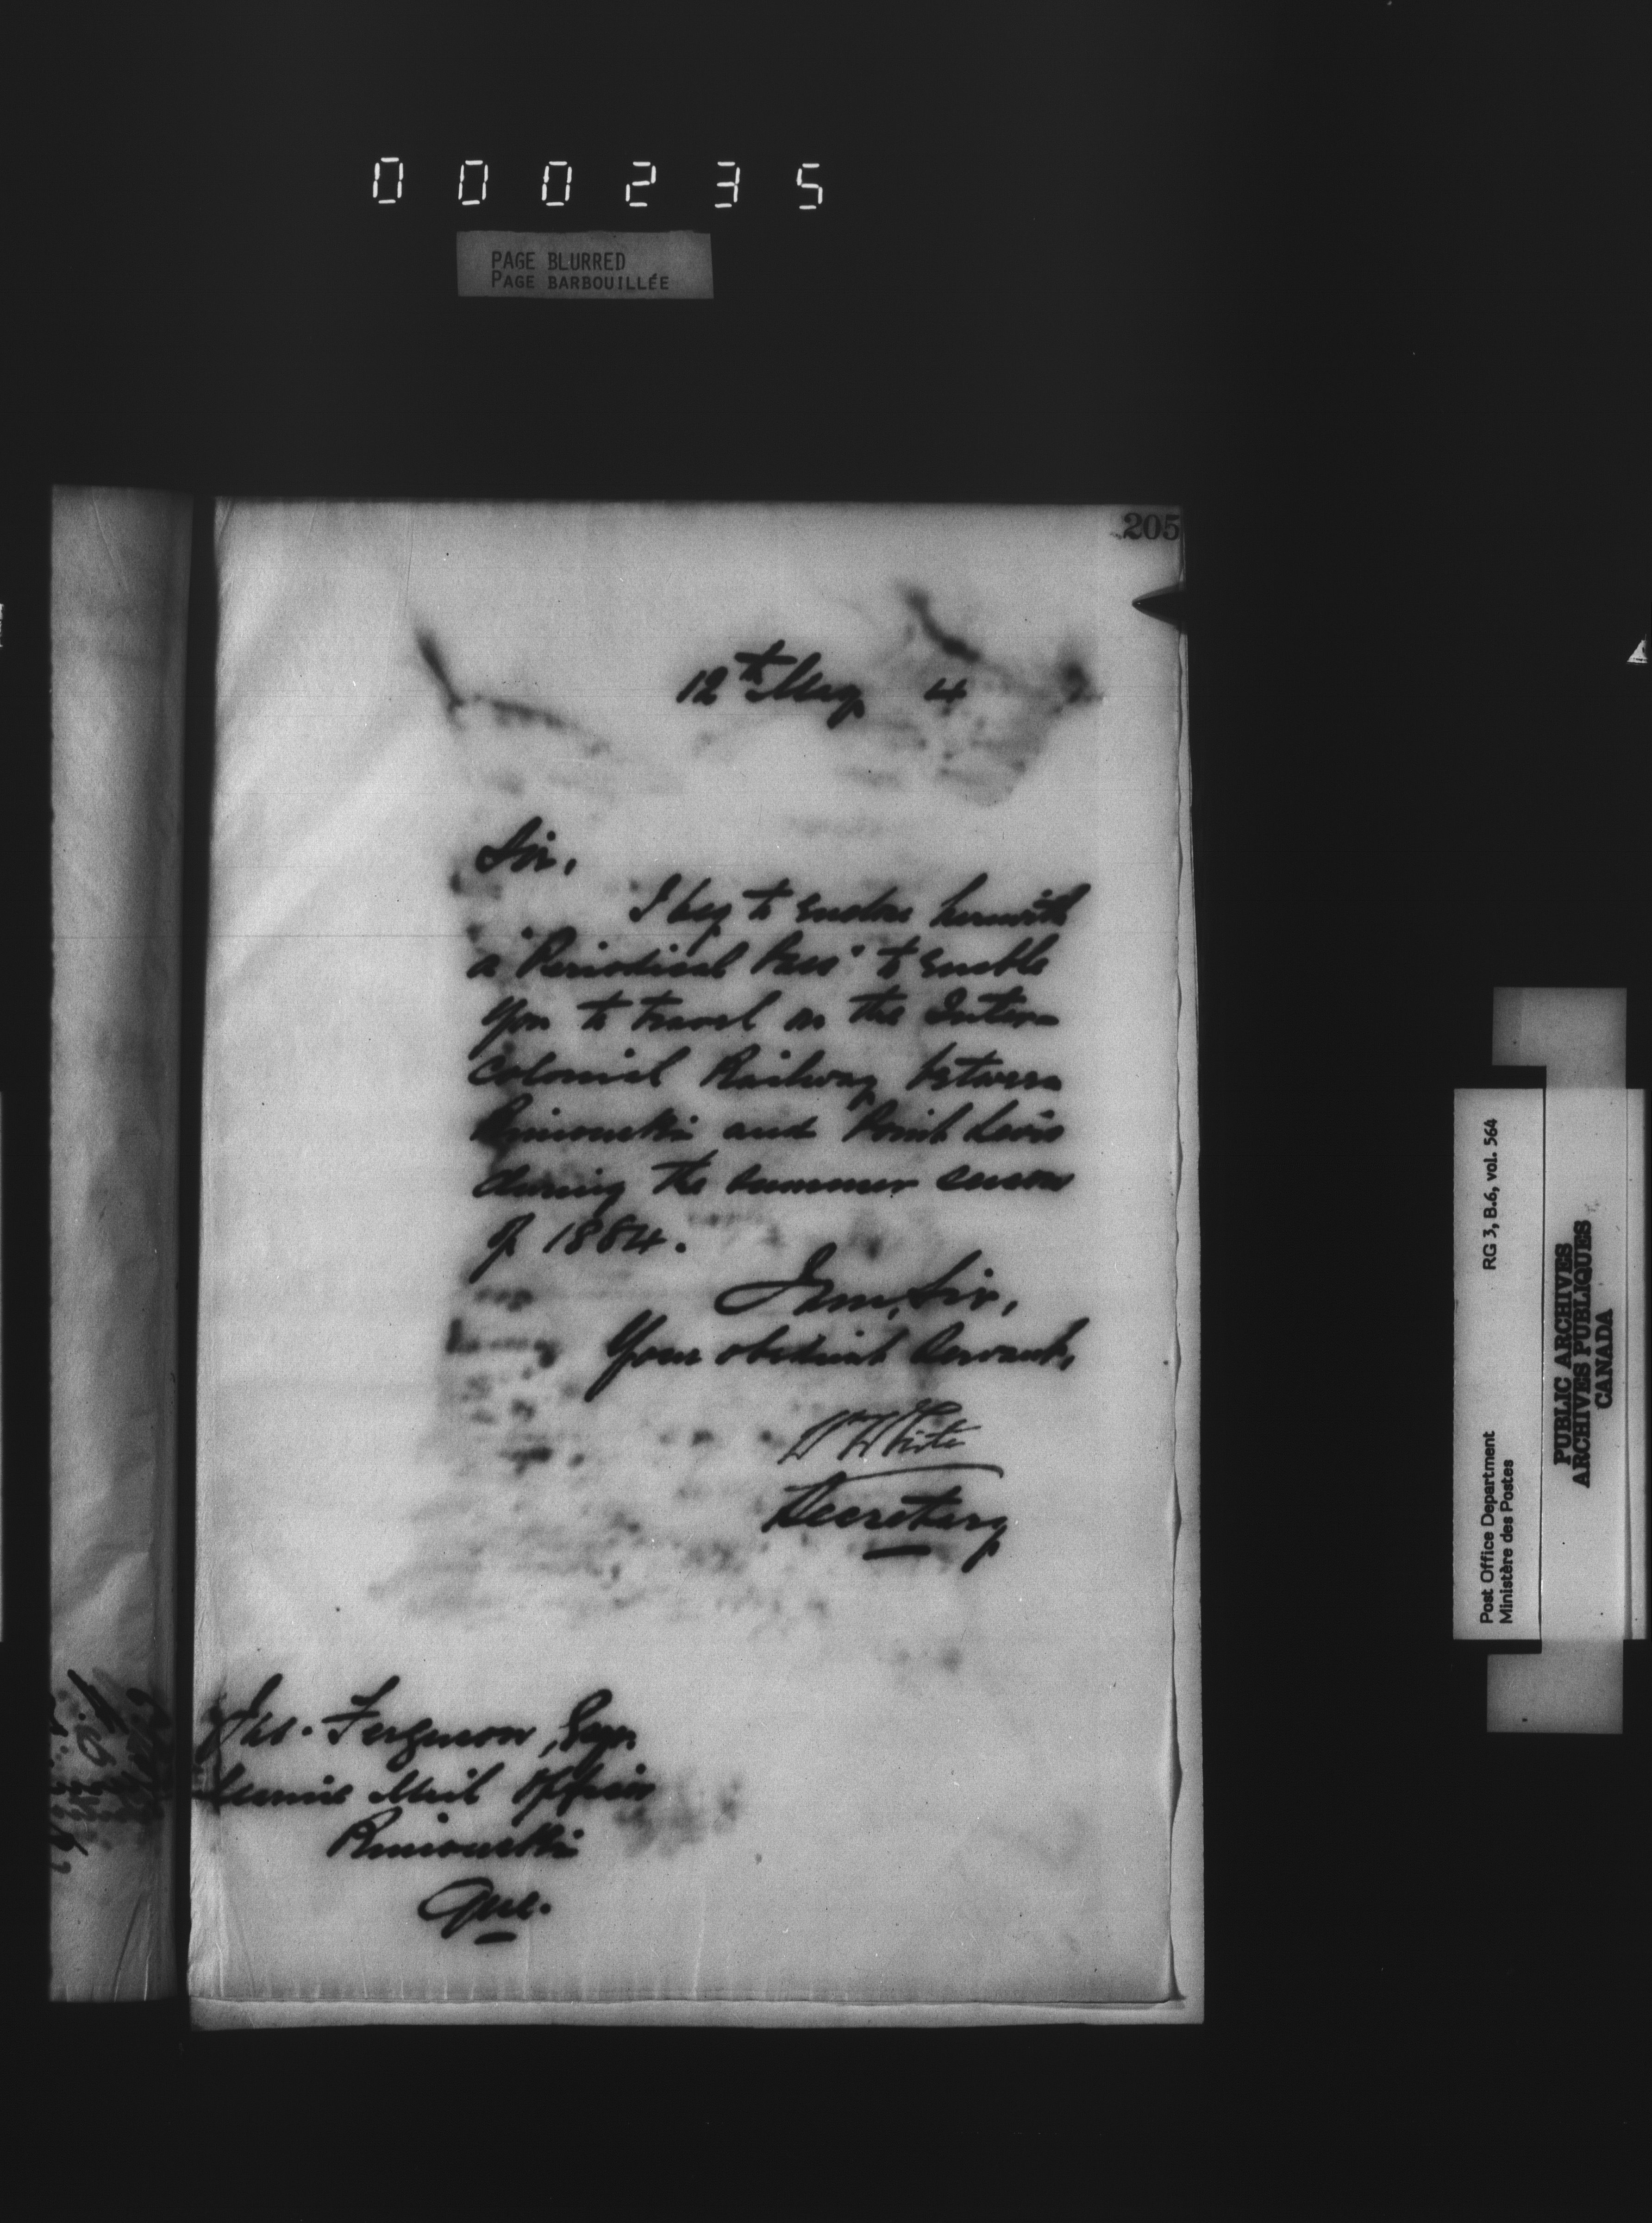 000235
PAGE BLURRED
PAGE BARBOUILLÉE
205
12th May 4
Sir,
I beg to enclose herewith
a "Periodical Pass" to enable
you to travel on the Inter=
colonial Railway between
Rimouski and Point Levis
during the summer season
of 1884.
I am, Sir,
Your obedient Servant,
W White
Secretary
Jas. Ferguson, Esqr.
Marine Mail Officer
Rimouski
Que.
Post Office Department
Ministère des Postes
RG 3, B.6, vol. 564
PUBLIC ARCHIVES
ARCHIVES PUBLIQUES
CANADA